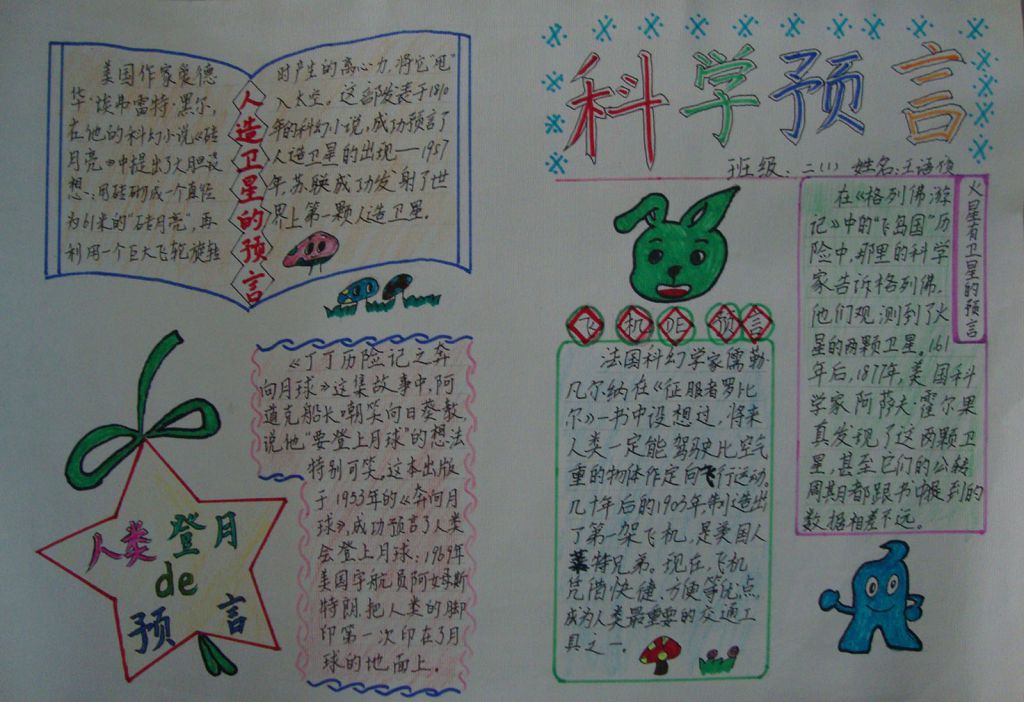 科学预言
班级：二（1） 姓名：王语
美国作家爱德
华·埃弗雷特·黑尔，
在他的科幻小说《砖
月亮》中提出了大胆设
想：用砖砌成一个直径
为61米的“砖月亮”，再
利用一个巨大飞轮旋转
人造卫星的预言
时产生的离心力，将它“甩”
入太空。这部发表于1870
年的科幻小说，成功预言了
人造卫星的出现——1957
年，苏联成功发射了世
界上第一颗人造卫星。
人类登月
de
预言
《丁丁历险记之奔
向月球》这集故事中，阿
道克船长嘲笑向日葵教
说他“要登上月球”的想法
特别可笑。这本出版
于1953年的《奔向月
球》，成功预言了人类
会登上月球：1969年
美国宇航员阿姆斯
特朗，把人类的脚
印第一次印在了月
球的地面上。
飞机DE预言
法国科幻学家儒勒·
凡尔纳在《征服者罗比
尔》一书中设想过，将来
人类一定能驾驶比空气
重的物体作定向飞行运动。
几十年后的1903年，制造出
了第一架飞机，是美国人
莱特兄弟。现在，飞机
凭借快健、方便等优点，
成为人类最重要的交通工
具之一。
火星有卫星的预言
在《格列佛游
记》中的“飞岛国”历
险中，那里的科学
家告诉格列佛，
他们观测到了火
星的两颗卫星。161
年后，1877年，美国科
学家阿萨夫·霍尔果
真发现了这两颗卫
星，甚至它们的公转
周期都跟书中提到的
数据相差不远。